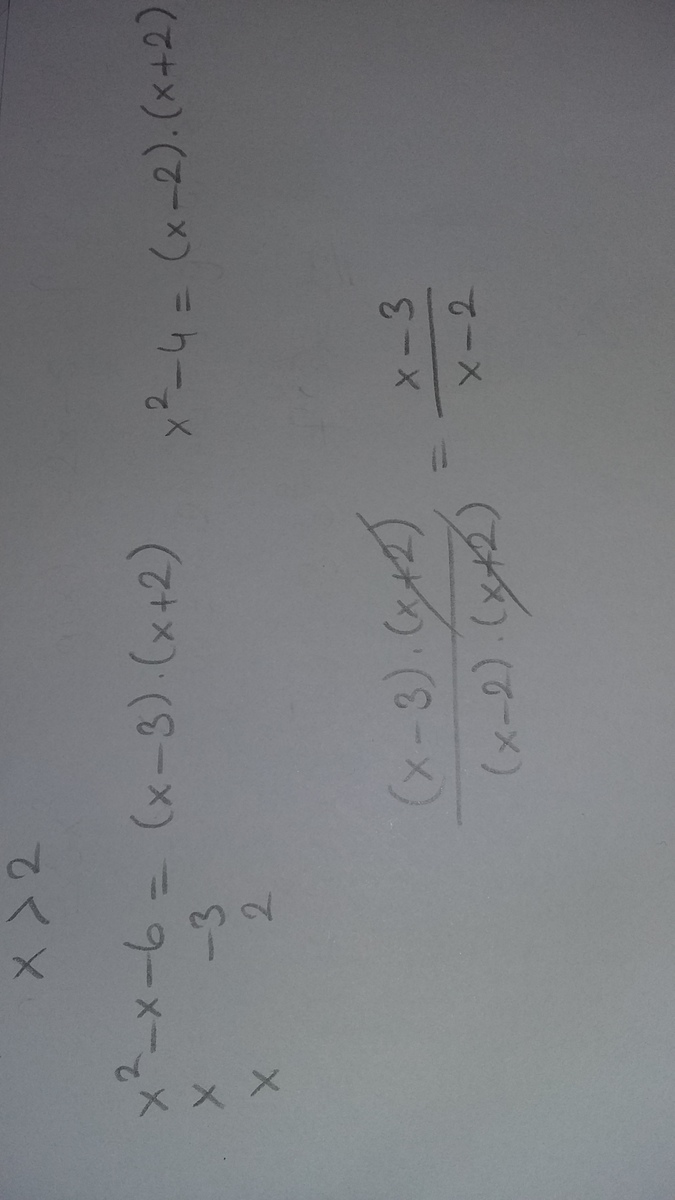 x > 2
x² - x - 6 = (x - 3) . (x + 2)    x² - 4 = (x - 2) . (x + 2)
x    -3
x    2
(x - 3) . (x + 2) / (x - 2) . (x + 2) = x - 3 / x - 2